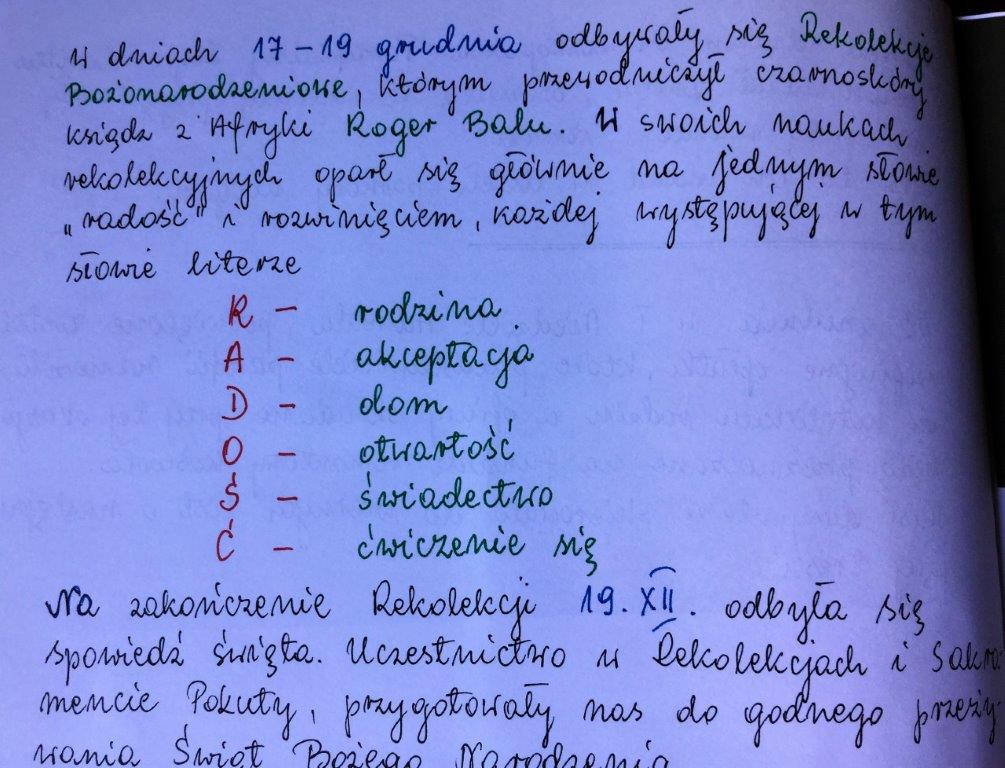 W dniach 17 – 19 grudnia odbywały się Rekolekcje
Bożonarodzeniowe, którym przewodniczył czarnoskóry
ksiądz z Afryki Roger Balu. W swoich naukach
rekolekcyjnych oparł się głównie na jednym słowie
„radość" i rozwinięciem, każdej występującej w tym
słowie literze
R – rodzina
A – akceptacja
D – dom
O – otwartość
Ś – świadectwo
Ć – ćwiczenie się
Na zakończenie Rekolekcji 19.XII. odbyła się
spowiedź święta. Uczestnictwo w Rekolekcjach i Sakra-
mencie Pokuty, przygotowały nas do godnego przeży-
wania Świąt Bożego Narodzenia